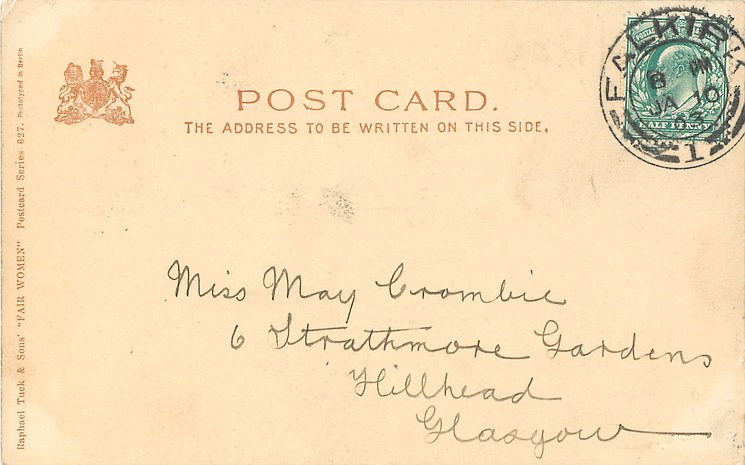 POST CARD.
THE ADDRESS TO BE WRITTEN ON THIS SIDE.
FALKIRK
8 PM
JA 10
03
1
HALF PENNY
Miss May Crombie
6 Strathmore Gardens
Hillhead
Glasgow
Raphael Tuck & Sons' "FAIR WOMEN" Postcard Series 627. Phototyped in Berlin